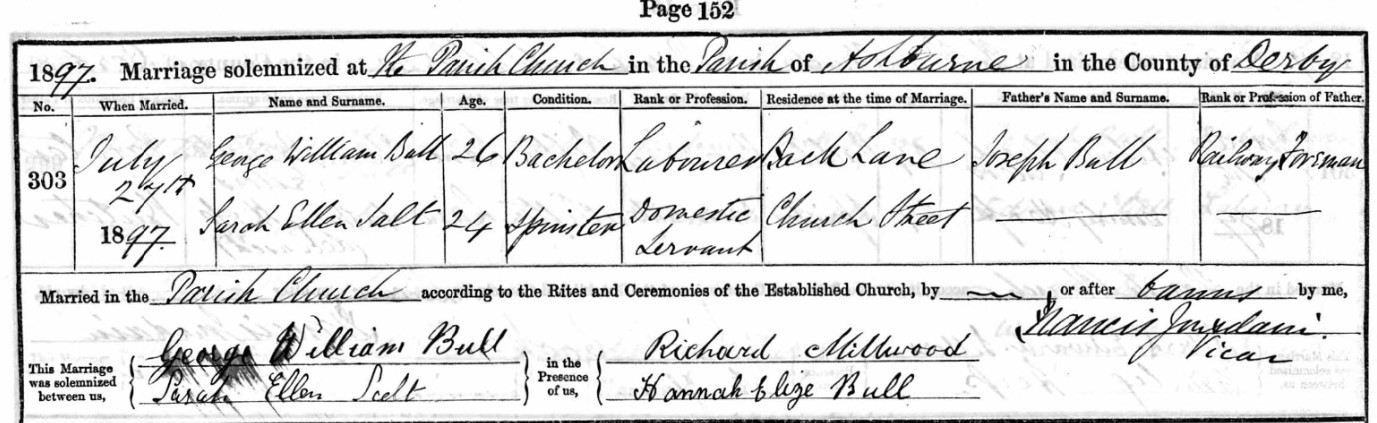 Page 152
1897. Marriage solemnized at The Parish Church in the Parish of Ashburne in the County of Derby
No. When Married. Name and Surname. Age. Condition. Rank or Profession. Residence at the time of Marriage. Father's Name and Surname. Rank or Profession of Father.
303 July 27th 1897. George William Bull 26 Bachelor Labourer Back Lane Joseph Bull Railway Forsman
Sarah Ellen Salt 24 Spinster Domestic Servant Church Street
Married in the Parish Church according to the Rites and Ceremonies of the Established Church, by , or after banns by me,
Francis Jourdain
Vicar
This Marriage was solemnized between us, George William Bull in the Presence of us, Richard Millwood
Sarah Ellen Salt Hannah Elize Bull